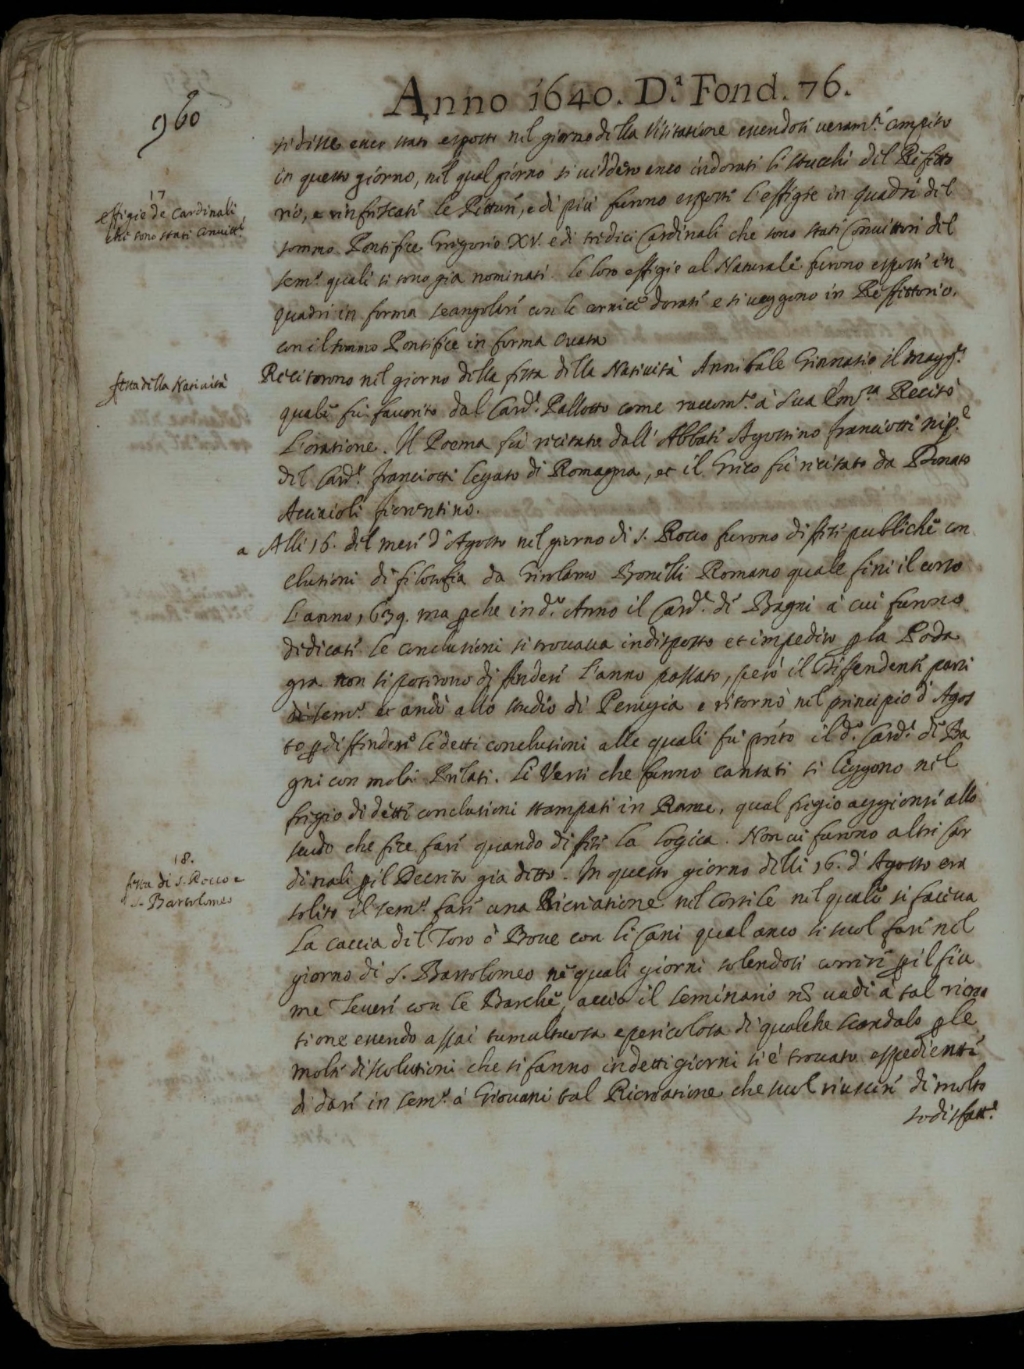 Anno 1640. D.ª Fond. 76.
960
si disse esser stati esposti nel giorno della Visitatione essendosi veram.te compito
in questo giorno, nel qual giorno si viddero anco indorati li stucchi del Refetto
rio, e rinfrescati le Pitture, e di più furono esposti l'effigie in quadri del
17
effigie de Cardinali
che sono stati Convitt.i
sommo Pontefice Gregorio XV. e di tredici Cardinali che sono stati Convittori del
sem.o quali si sono già nominati le loro effigie al Naturale furono esposti in
quadri in forma seangolari con le cornice dorati e si veggono in Reffettorio,
con il sommo Pontefice in forma Ovata
festa della Natività
Recitorono nel giorno della festa della Natività Annibale Ginnasio il magg.re
quale fu favorito dal Card.l Pallotto come raccom.to à Sua Em.za Recitò
L'oratione. Il Poema fu recitato dall'Abbate Agostino franciotti nip.e
del Card.l franciotti legato di Romagna, et il Greco fu recitato da Donato
Acciaioli fiorentino.
a Alli 16. del mese d'Agosto nel giorno di S. Rocco furono difesi publiche con
clusioni di filosofia da Girolamo Bonelli Romano quale finì il corso
L'anno 1639. ma perche in d.o Anno il Card.l di Bagni à cui furono
dedicati le conclusioni si trovava indisposto et impedito per la Poda
gra non si potirono difendere l'anno passato, però il diffendente partì
di sem.o et andò allo studio di Perugia e ritornò nel principio d'Agos
to per diffindere le detti conclusioni alle quali fu pnte il d.o Card.l di Ba
gni con molti Prelati. Li Versi che furono cantati si leggono nel
fregio di detti conclusioni stampati in Rame, qual fregio aggionse allo
scudo che fice fare quando difese la Logica. Non vi furono altri Car
18.
festa di S. Rocco e
S. Bartolomeo
dinali per il Decreto già detto. In questo giorno delli 16. d'Agosto era
solito il sem.o fare una Ricreatione nel Cortile nel quale si faceva
La caccia del Toro ò Bove con li Cani qual anco si suol fare nel
giorno di S. Bartolomeo ne quali giorni solendosi correre per il fiu
me Tevere con le Barche, accio il seminario nō vadi à tal ricrea
tione essendo assai tumultuosa e pericolosa di qualche scandalo per le
molte dissolutioni che si fanno in detti giorni si è trovato espediente
di dare in sem.o à Giovani tal Ricreatione che suol riuscire di molto
sodisfatt.e